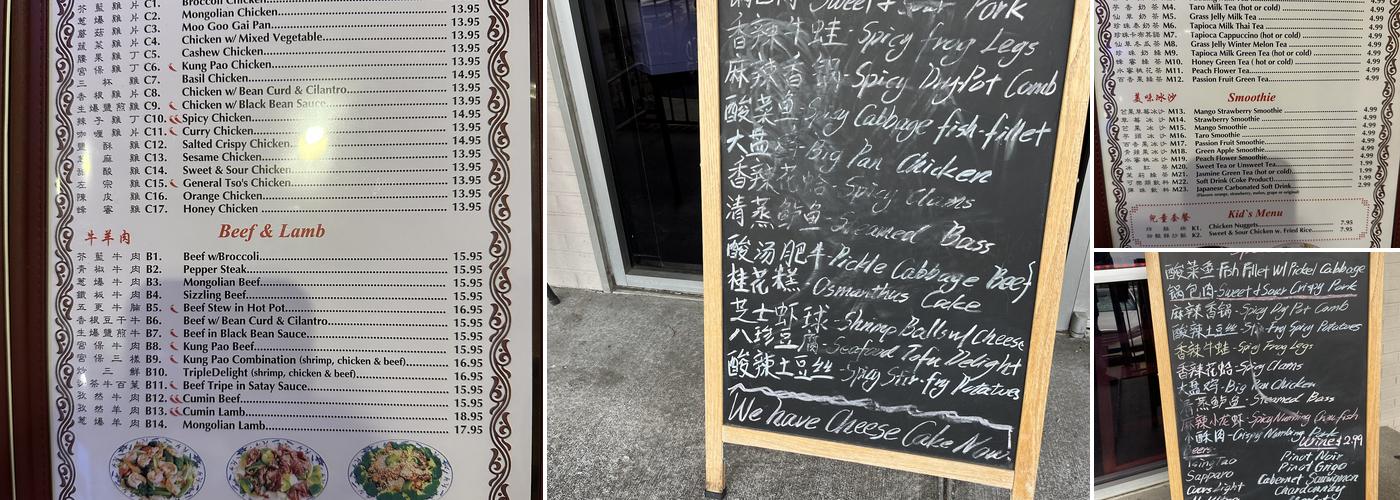 芥藍雞片 C1. Broccoli Chicken 13.95
蔥爆雞片 C2. Mongolian Chicken 13.95
蘑菇雞片 C3. Moo Goo Gai Pan 13.95
蔬菜雞片 C4. Chicken w/ Mixed Vegetable 13.95
腰果雞丁 C5. Cashew Chicken 13.95
宮保雞丁 C6. Kung Pao Chicken 13.95
三杯雞 C7. Basil Chicken 14.95
香根雞片 C8. Chicken w/ Bean Curd & Cilantro 13.95
生爆鹽煎雞 C9. Chicken w/ Black Bean Sauce 14.95
辣子雞丁 C10. Spicy Chicken 14.95
咖喱雞片 C11. Curry Chicken 13.95
鹽酥雞 C12. Salted Crispy Chicken 14.95
芝麻雞 C13. Sesame Chicken 13.95
甜酸雞 C14. Sweet & Sour Chicken 13.95
左宗雞 C15. General Tso's Chicken 13.95
陳皮雞 C16. Orange Chicken 13.95
蜂蜜雞 C17. Honey Chicken 13.95
牛羊肉 Beef & Lamb
芥藍牛肉 B1. Beef w/Broccoli 15.95
青椒牛肉 B2. Pepper Steak 15.95
蔥爆牛肉 B3. Mongolian Beef 15.95
鐵板牛肉 B4. Sizzling Beef 15.95
五更牛腩 B5. Beef Stew in Hot Pot 16.95
香根豆干牛 B6. Beef w/ Bean Curd & Cilantro 15.95
生爆鹽煎牛 B7. Beef in Black Bean Sauce 15.95
宮保牛肉 B8. Kung Pao Beef 15.95
宮保三樣 B9. Kung Pao Combination (shrimp, chicken & beef) 16.95
炒三鮮 B10. TripleDelight (shrimp, chicken & beef) 16.95
沙茶牛百葉 B11. Beef Tripe in Satay Sauce 15.95
孜然牛肉 B12. Cumin Beef 15.95
孜然羊肉 B13. Cumin Lamb 18.95
蔥爆羊肉 B14. Mongolian Lamb 17.95
锅包肉-Sweet & Sour Pork
香辣牛蛙-Spicy frog Legs
麻辣香锅-Spicy Dry Pot Comb
酸菜鱼-Spicy Cabbage fish-fillet
大盘鸡-Big Pan Chicken
香辣花蛤-Spicy Clams
清蒸鲈鱼-Steamed Bass
酸汤肥牛-Pickle Cabbage Beef
桂花糕-Osmanthus Cake
芝士虾球-Shrimp Balls w/ Cheese
八珍豆腐-Seafood Tofu Delight
酸辣土豆丝-Spicy Stir-fry Potatoes
We have Cheese Cake Now.
芋香奶茶 M4. Taro Milk Tea (hot or cold) 4.99
仙草奶茶 M5. Grass Jelly Milk Tea 4.99
珍珠泰奶茶 M6. Tapioca Milk Thai Tea 4.99
珍珠卡布其諾 M7. Tapioca Cappuccino (hot or cold) 4.99
仙草冬瓜茶 M8. Grass Jelly Winter Melon Tea 4.99
珍珠奶綠 M9. Tapioca Milk Green Tea (hot or cold) 4.99
蜂蜜綠茶 M10. Honey Green Tea (hot or cold) 4.99
水蜜桃花茶 M11. Peach Flower Tea 4.99
百香果綠茶 M12. Passion Fruit Green Tea 4.99
美味冰沙 Smoothie
芒果草莓冰沙 M13. Mango Strawberry Smoothie 4.99
草莓冰沙 M14. Strawberry Smoothie 4.99
芒果冰沙 M15. Mango Smoothie 4.99
芋頭冰沙 M16. Taro Smoothie 4.99
百香果冰沙 M17. Passion Fruit Smoothie 4.99
青蘋果冰沙 M18. Green Apple Smoothie 4.99
水蜜桃冰沙 M19. Peach Flower Smoothie 4.99
冰茶 M20. Sweet Tea or Unsweet Tea 1.99
茉莉綠茶 M21. Jasmine Green Tea (hot) 1.99
可樂類飲料 M22. Soft Drink (Coke Product) 1.99
彈珠飲料 M23. Japanese Carbonated Soft Drink 2.99
(Flavors: orange, strawberry, melon, grape or original)
兒童套餐 Kid's Menu
炸雞塊 K1. Chicken Nuggets 7.95
K2. Sweet & Sour Chicken w. Fried Rice 7.95
酸菜鱼-Fish Fillet W/ Pickel Cabbage
锅包肉-Sweet & Sour Crispy Pork
麻辣香锅-Spicy Dry Pot Comb
酸辣土豆丝-Stir-Fry Spicy Potatoes
香辣牛蛙-Spicy Frog Legs
香辣花蛤-Spicy Clams
大盘鸡-Big Pan Chicken
清蒸鲈鱼-Steamed Bass
麻辣小龙虾-Spicy Numbing Crawfish
小酥肉-Crispy Numbing Pork
Beer: Wine $2.99
TsingTao Pinot Noir
Sapparo Pinot Grigo
Coors Light Cabernet Sauvignon
Chardonnay